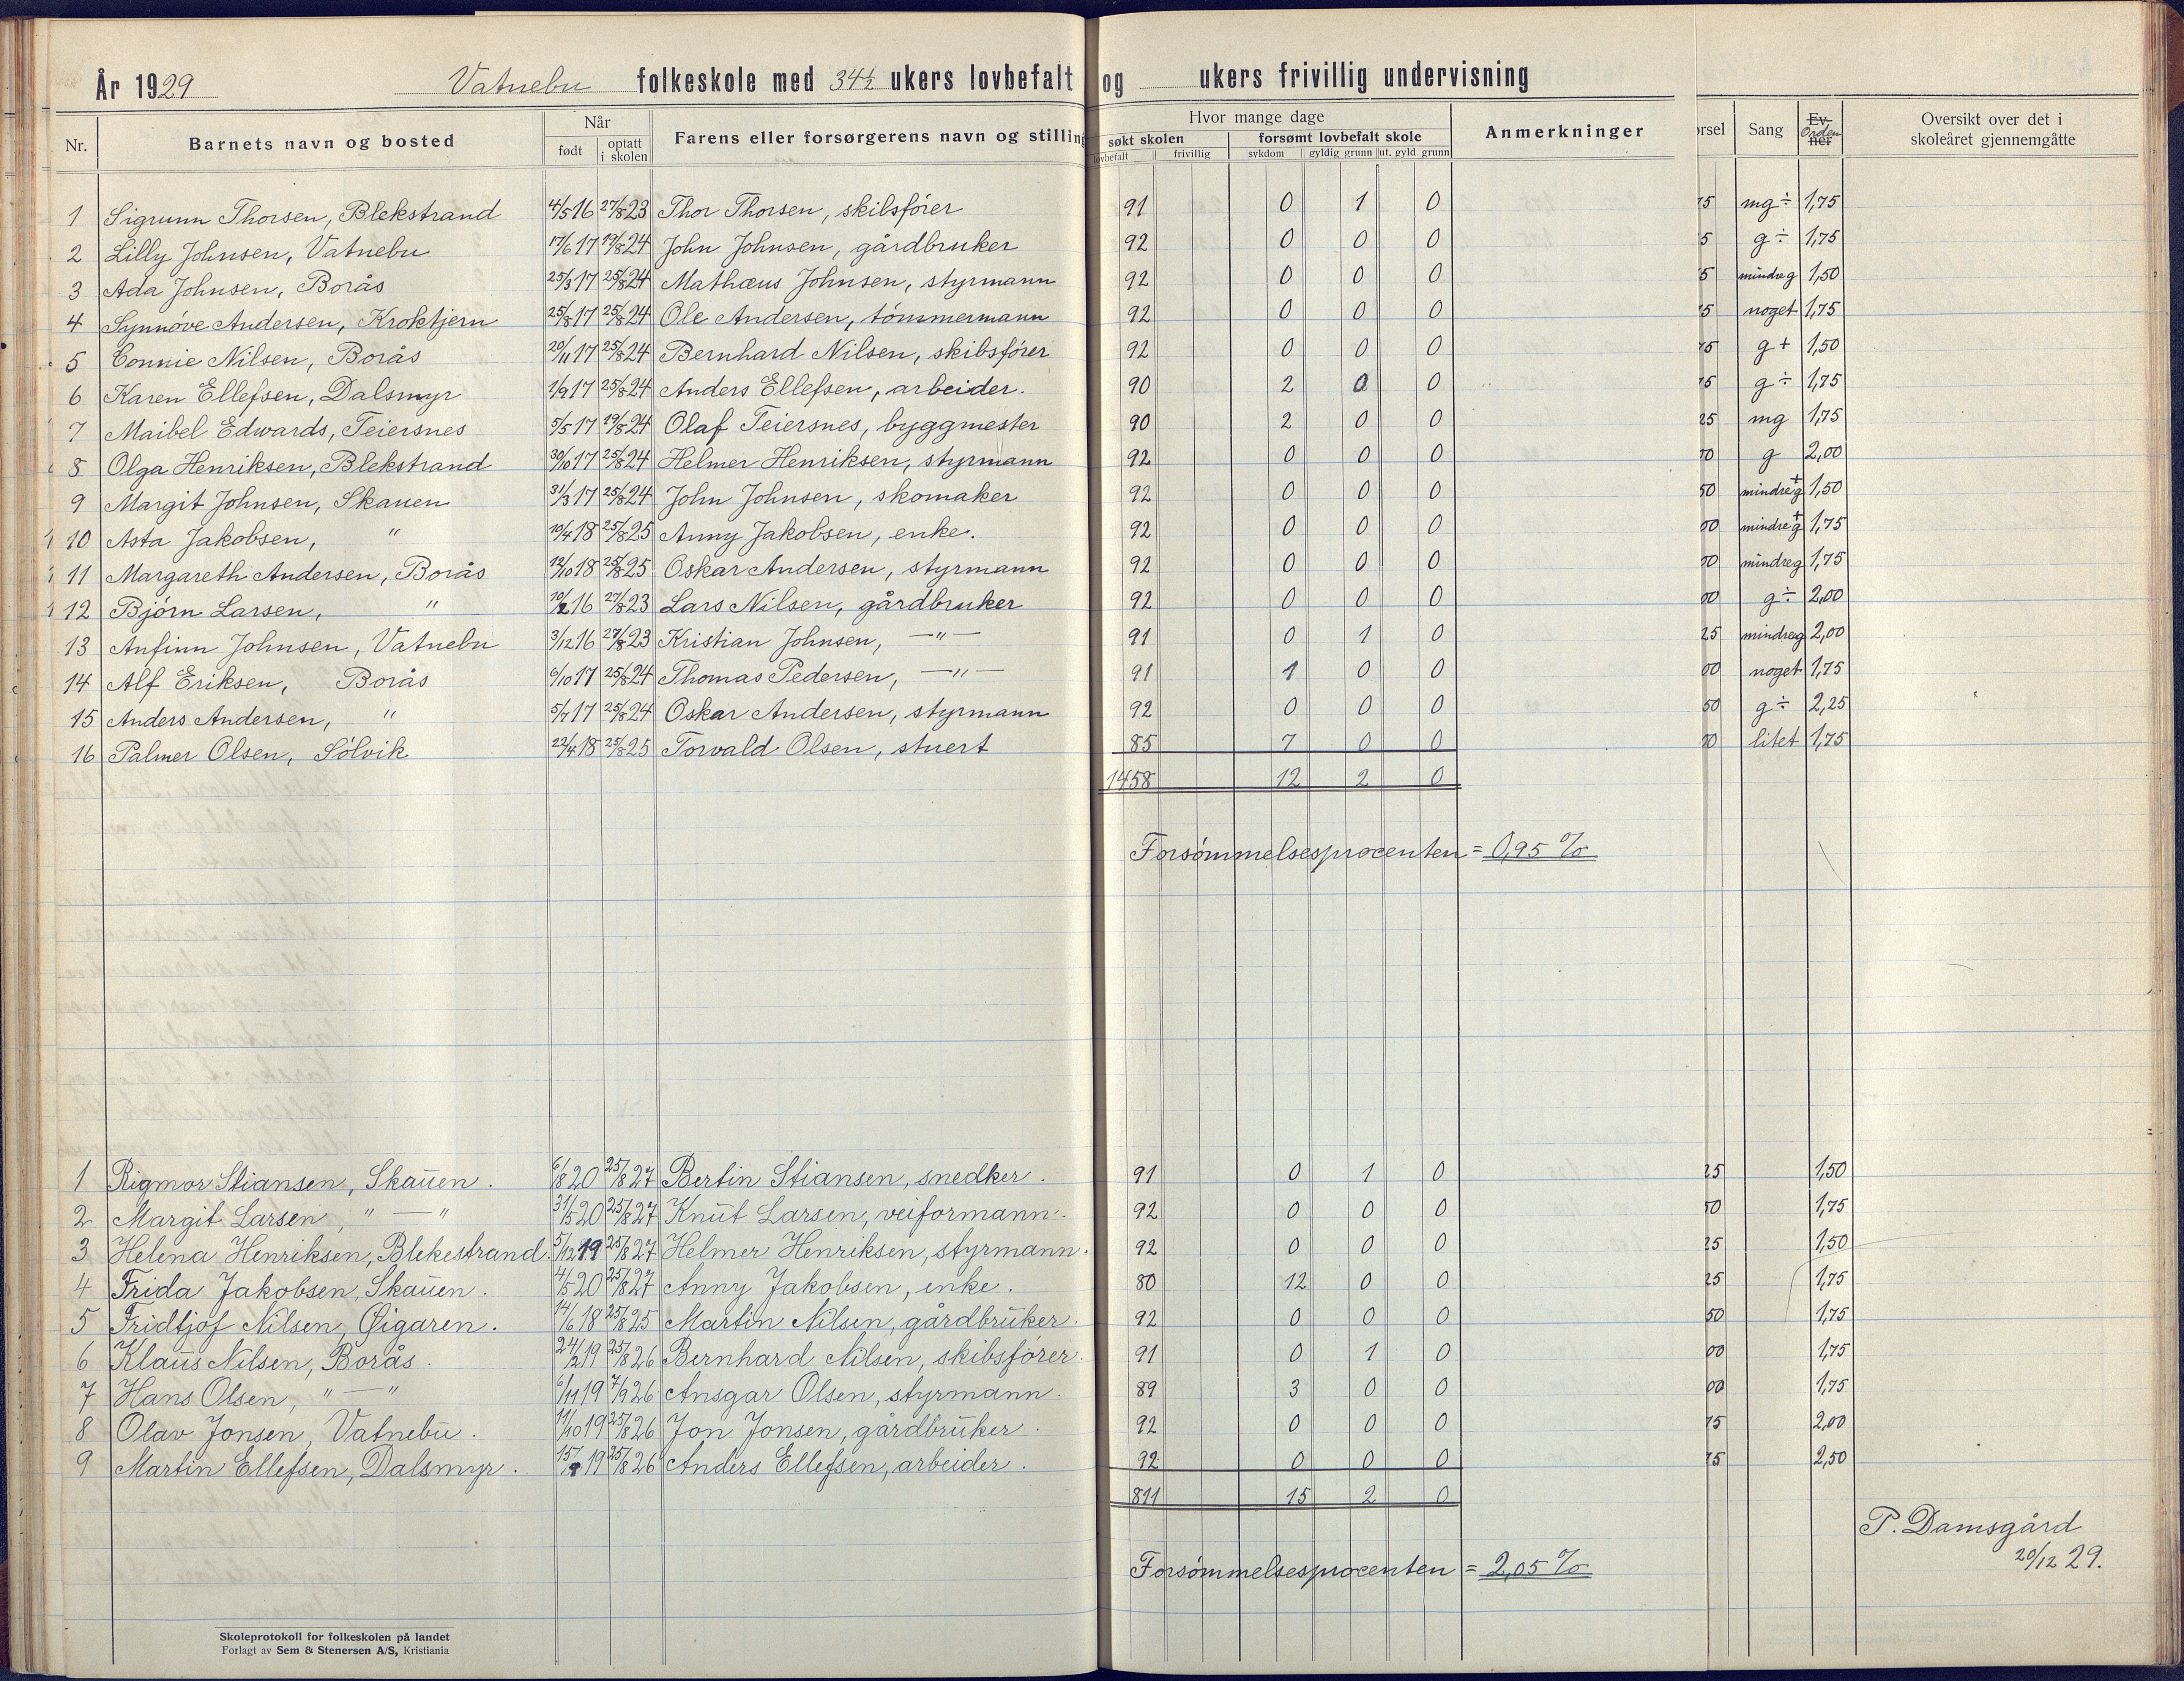 År 1929 Vatnebu folkeskole med 34½ ukers lovbefalt og ukers frivillig undervisning
Nr. Barnets navn og bosted Når født optatt i skolen Farens eller forsørgerens navn og stilling Hvor mange dage søkt skolen lovbefalt frivillig forsømt lovbefalt skole sykdom gyldig grunn ut. gyld grunn Anmerkninger Sang Ev. ner Orden Oversikt over det i skoleåret gjennemgåtte
1 Sigrunn Thorsen, Blekstrand 4/5 16 27/8 23 Thor Thorsen, skibsfører 91 0 1 0 mg÷ 1,75
2 Lilly Johnsen, Vatnebu 17/6 17 19/8 24 John Johnsen, gårdbruker 92 0 0 0 5 g÷ 1,75
3 Ada Johnsen, Borås 25/3 17 25/8 24 Mathæus Johnsen, styrmann 92 0 0 0 5 mindre g 1,50
4 Synnøve Andersen, Kroktjern 25/8 17 25/8 24 Ole Andersen, tømmermann 92 0 0 0 5 noget 1,75
5 Connie Nilsen, Borås 20/11 17 25/8 24 Bernhard Nilsen, skibsfører 92 0 0 0 g+ 1,50
6 Karen Ellefsen, Dalsmyr 1/9 17 25/8 24 Anders Ellefsen, arbeider. 90 2 0 0 g÷ 1,75
7 Maibel Edwards, Teiersnes 5/5 17 19/8 24 Olaf Teiersnes, byggmester 90 2 0 0 25 mg 1,75
8 Olga Henriksen, Blekstrand 30/10 17 25/8 24 Helmer Henriksen, styrmann 92 0 0 0 g 2,00
9 Margit Johnsen, Skauen 31/3 17 25/8 24 John Johnsen, skomaker 92 0 0 0 50 mindre g+ 1,50
10 Asta Jakobsen, " 10/4 18 25/8 25 Anny Jakobsen, enke. 92 0 0 0 00 mindre g+ 1,75
11 Margareth Andersen, Borås 12/10 18 25/8 25 Oskar Andersen, styrmann 92 0 0 0 00 mindre g 1,75
12 Bjørn Larsen, " 10/2 16 27/8 23 Lars Nilsen, gårdbruker 92 0 0 0 00 g÷ 2,00
13 Anfinn Johnsen, Vatnebu 3/12 16 27/8 23 Kristian Johnsen, —"— 91 0 1 0 25 mindre g 2,00
14 Alf Eriksen, Borås 6/10 17 25/8 24 Thomas Pedersen, —"— 91 1 0 0 00 noget 1,75
15 Anders Andersen, " 5/7 17 25/8 24 Oskar Andersen, styrmann 92 0 0 0 50 g÷ 2,25
16 Palmer Olsen, Sølvik 22/4 18 25/8 25 Torvald Olsen, stuert 85 7 0 0 litet 1,75
1458 12 2 0
Forsømmelsesprocenten = 0,95 %
1 Rigmor Stiansen, Skauen. 6/8 20 25/8 27 Bertin Stiansen, snedker. 91 0 1 0 25 1,50
2 Margit Larsen, "—" 31/5 20 25/8 27 Knut Larsen, veiformann. 92 0 0 0 50 1,75
3 Helena Henriksen, Blekestrand. 5/12 19 25/8 27 Helmer Henriksen, styrmann. 92 0 0 0 25 1,50
4 Frida Jakobsen, Skauen. 4/5 20 25/8 27 Anny Jakobsen, enke. 80 12 0 0 25 1,75
5 Fridtjof Nilsen, Øigaren. 14/6 18 25/8 25 Martin Nilsen, gårdbruker. 92 0 0 0 50 1,75
6 Klaus Nilsen, Borås. 24/2 19 25/8 26 Bernhard Nilsen, skibsfører. 91 0 1 0 00 1,75
7 Hans Olsen, "—" 6/11 19 7/9 26 Ansgar Olsen, styrmann. 89 3 0 0 00 1,75
8 Olav Jonsen, Vatnebu. 11/10 19 25/8 26 Jon Jonsen, gårdbruker. 92 0 0 0 75 2,00
9 Martin Ellefsen, Dalsmyr. 15/9 19 25/8 26 Anders Ellefsen, arbeider. 92 0 0 0 75 2,50
811 15 2 0
Forsømmelsesprocenten = 2,05 %
P. Damsgård
20/12 29.
Skoleprotokoll for folkeskolen på landet
Forlagt av Sem & Stenersen A/S, Kristiania